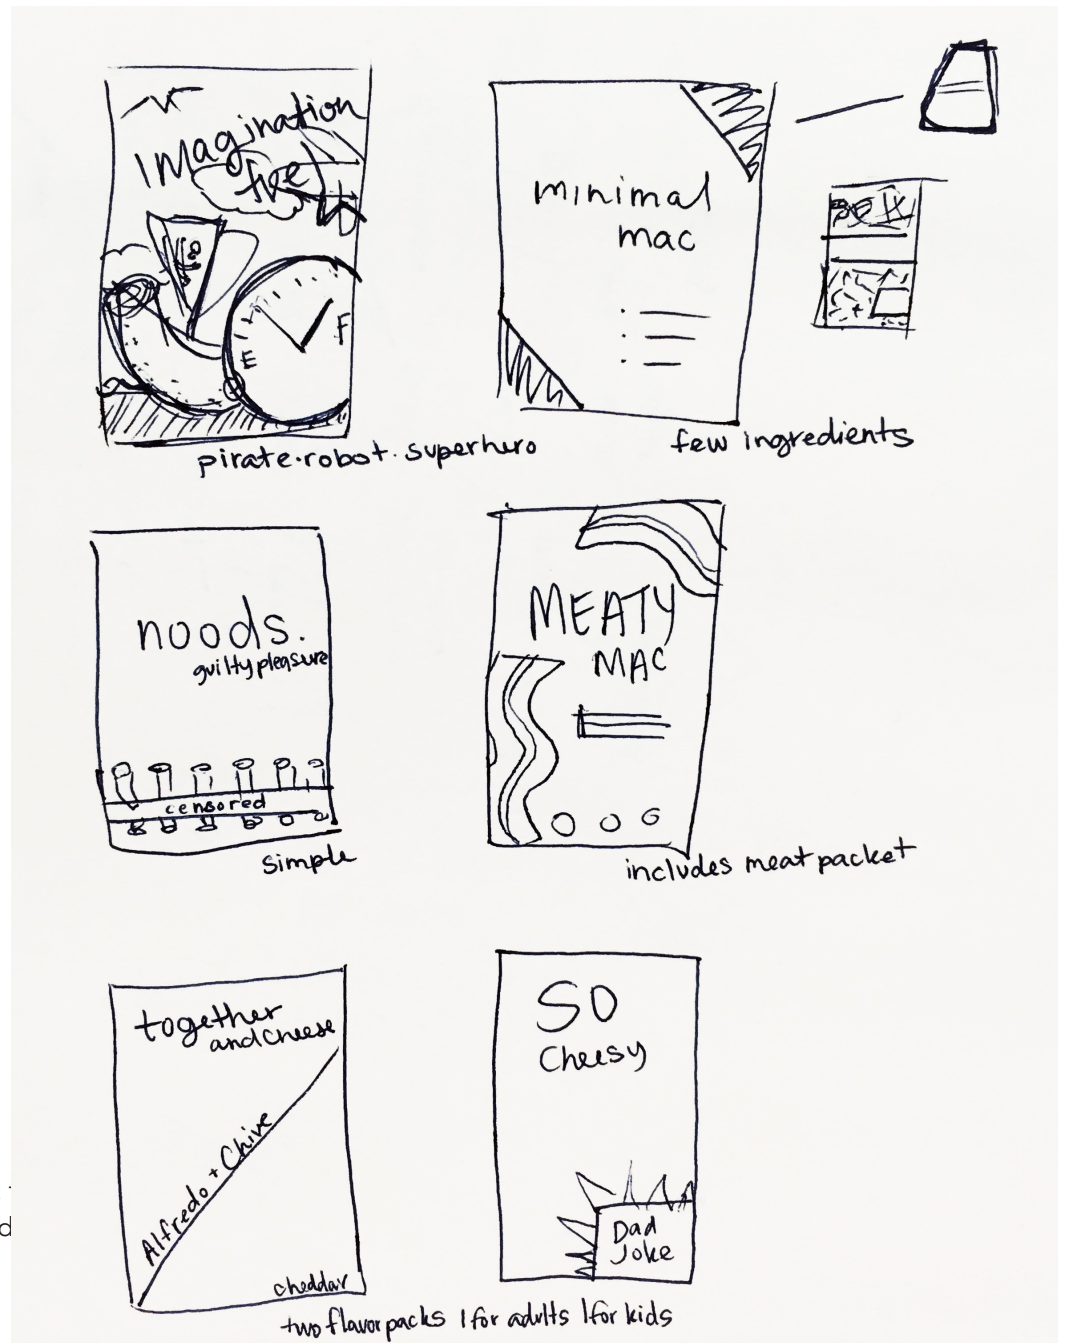 Imagination
fuel
E
F
pirate·robot·superhero
minimal
mac
few ingredients
noods.
guilty pleasure
censored
simple
MEATY
MAC
includes meat packet
together
and cheese
Alfredo + Chive
cheddar
SO
Cheesy
Dad
Joke
two flavor packs 1 for adults 1 for kids
d